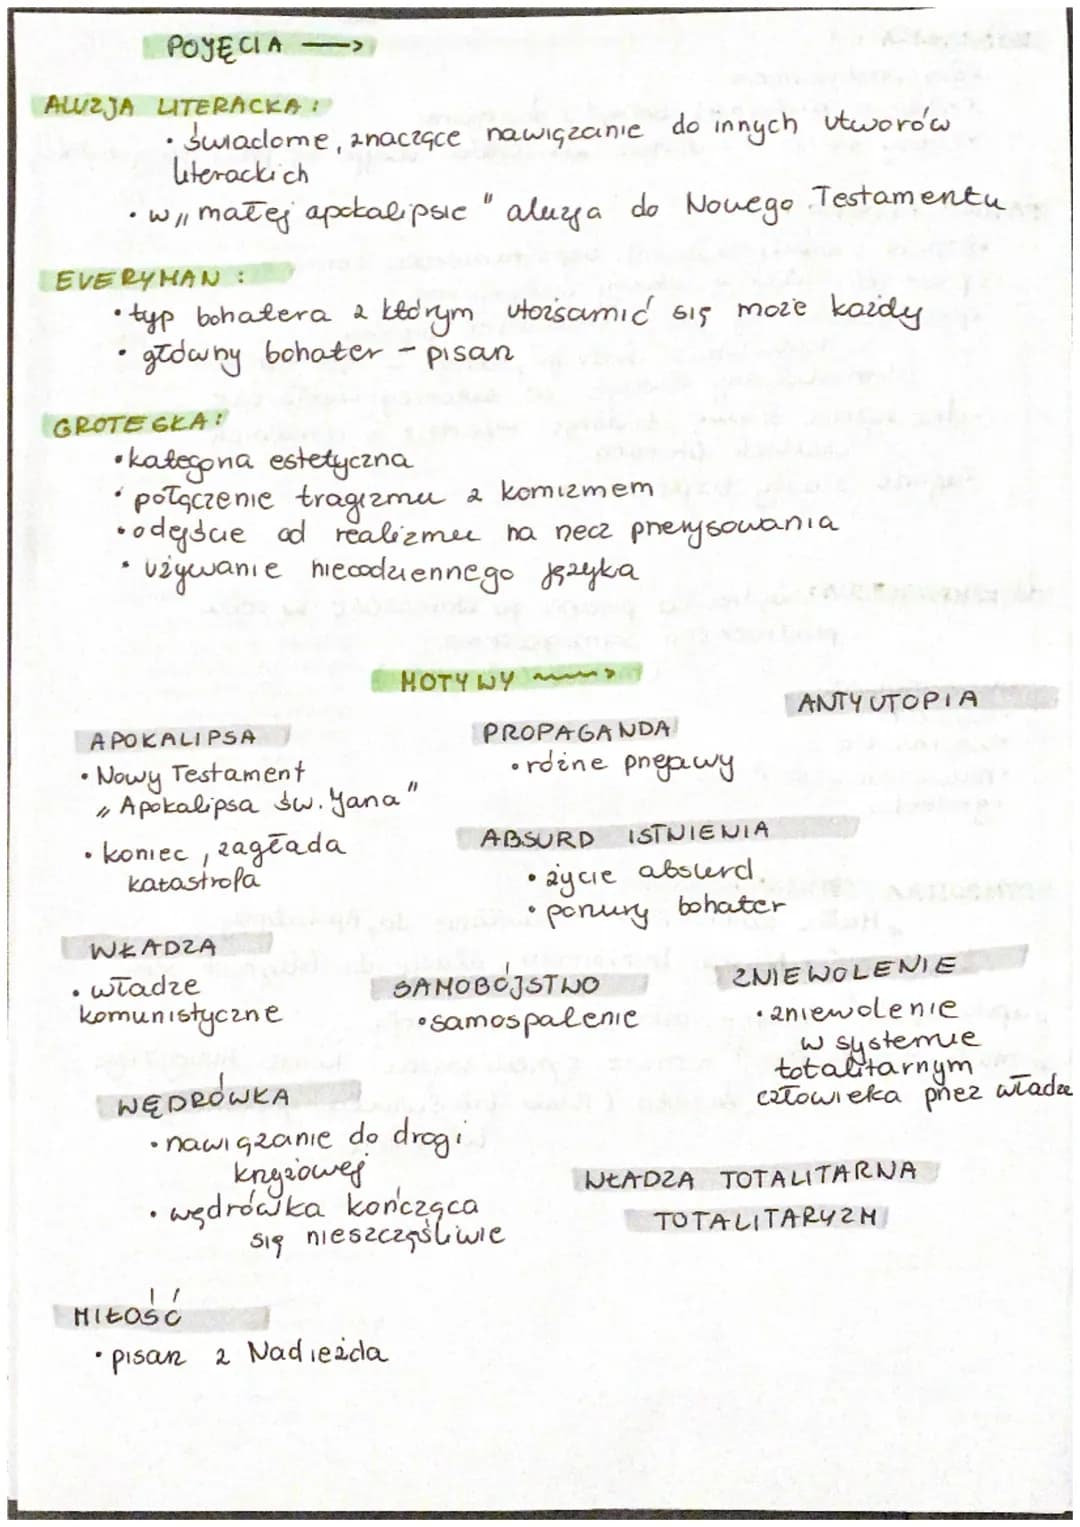 POJĘCIA →
ALUZJA LITERACKA:
• świadome, znaczące nawiązanie do innych utworów
literackich
• w „małej apokalipsie" aluzja do Nowego Testamentu
EVERYMAN:
• typ bohatera z którym utożsamić się może każdy
• główny bohater - pisarz
GROTESKA:
• kategoria estetyczna
• połączenie tragizmu z komizmem
• odejście od realizmu na rzecz przerysowania
• używanie niecodziennego języka
MOTYWY →
ANTYUTOPIA
APOKALIPSA
• Nowy Testament
„Apokalipsa św. Jana"
• koniec, zagłada
katastrofa
PROPAGANDA
• różne przejawy
ABSURD ISTNIENIA
• życie absurd
• ponury bohater
WŁADZA
• władze
komunistyczne
SAMOBÓJSTWO
• samospalenie
ZNIEWOLENIE
• zniewolenie
w systemie
totalitarnym
człowieka przez władze
WĘDRÓWKA
• nawiązanie do drogi
krzyżowej
• wędrówka kończąca
się nieszczęśliwie
WŁADZA TOTALITARNA
TOTALITARYZM
MIŁOŚĆ
• pisarz z Nadieżda